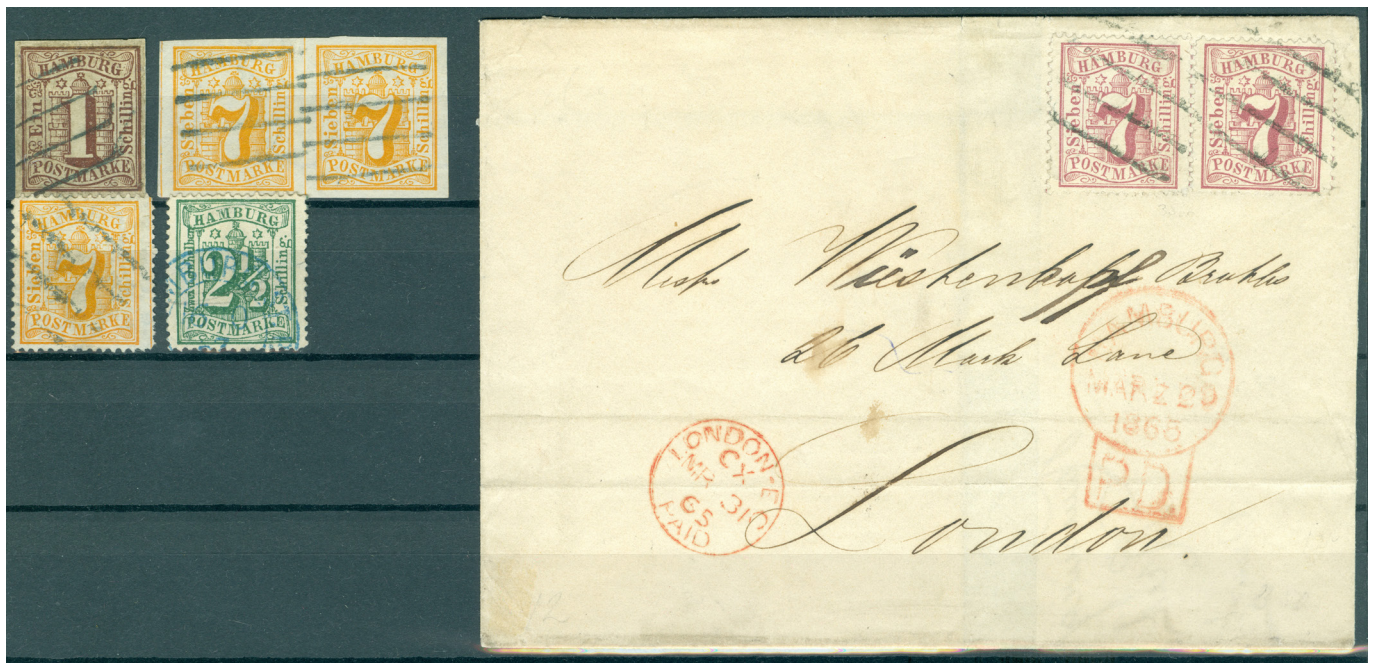 HAMBURG
Ein 1 Schilling
POSTMARKE
HAMBURG
Sieben 7 Schilling
POSTMARKE
HAMBURG
Sieben 7 Schilling
POSTMARKE
HAMBURG
Sieben 7 Schilling
POSTMARKE
HAMBURG
2½ Schilling
POSTMARKE
HAMBURG
Sieben 7 Schilling
POSTMARKE
HAMBURG
Sieben 7 Schilling
POSTMARKE
26 Mark Lane
London.
MARZ 29
1865
P.D.
LONDON-EC
CX
MR 31
65
PAID